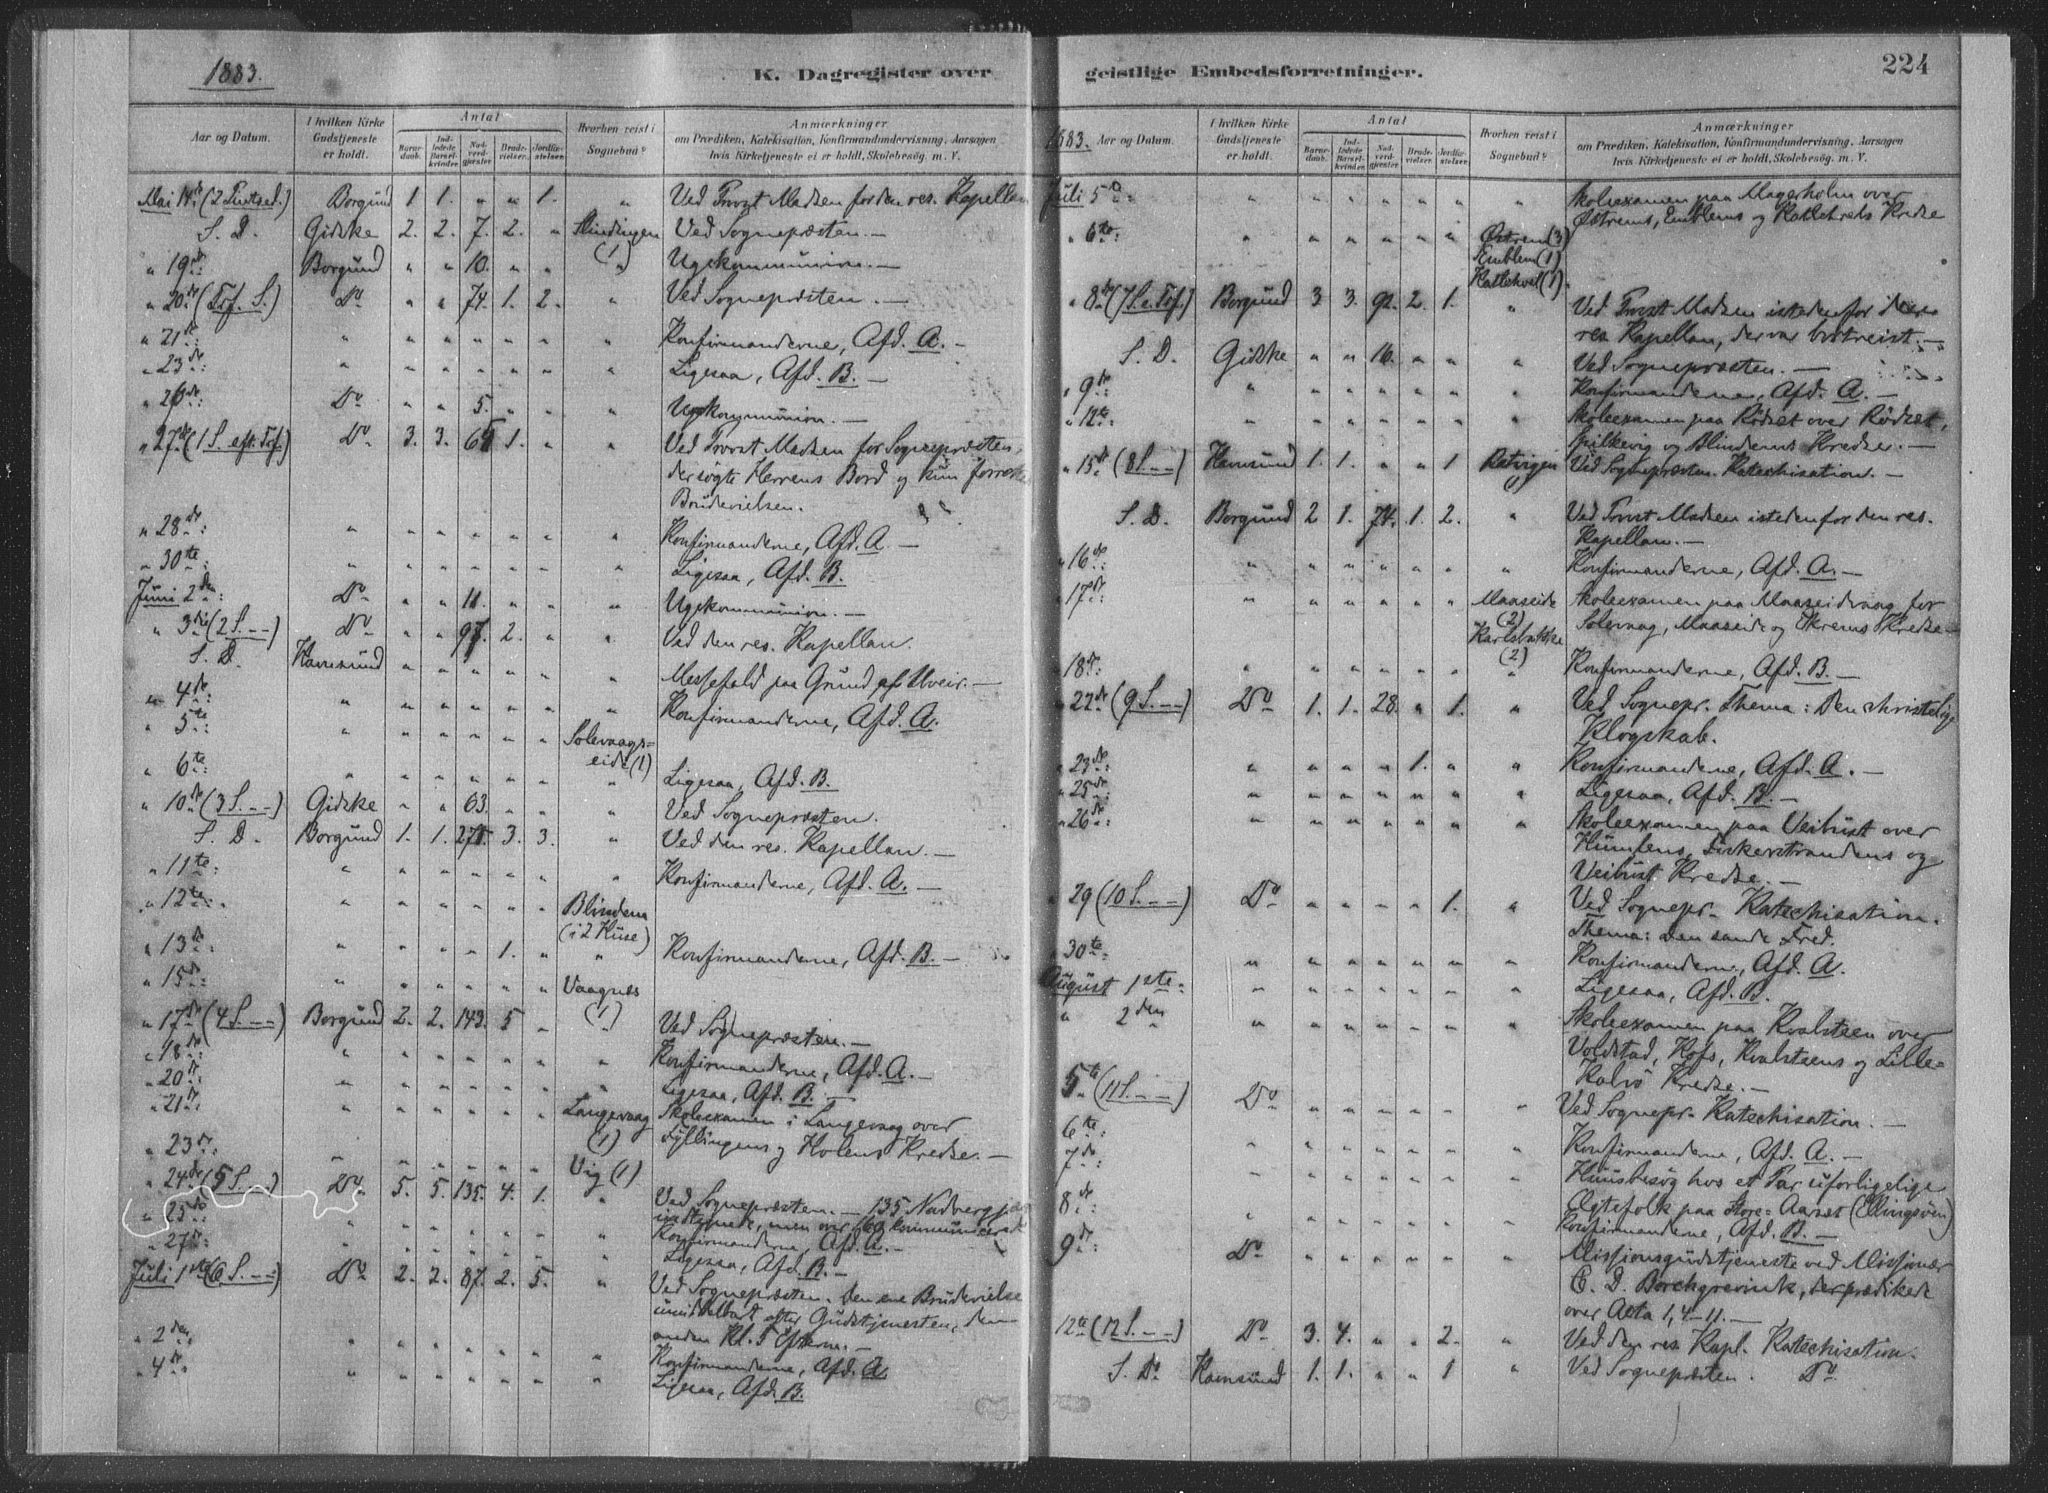 1883.
K. Dagregister over
Aar og Datum.
I hvilken Kirke Gudstjeneste er holdt.
Antal
Barnedaab.
Indledede Barselkvinder.
Nadverdgjester.
Brudevielser.
Jordfæstelser.
Hvorhen reist i Sognebud?
Anmærkninger
om Prædiken, Katekisation, Konfirmandundervisning, Aarsagen
hvis Kirketjeneste ei er holdt, Skolebesøg m. V.
Mai 14de (2 Pintsed.) Borgund 1 1. " " 1. " Ved Provst Madsen for den res. Kapellan
S. D. Gidske 2. 2. 7. 2. " Slindingen (1) Ved Sognepræsten. —
" 19de: Borgund " " 10. " " " Ugekommunion. —
" 20de (Tref. S.) Do " " 74. 1. 2. " Ved Sognepræsten. —
" 21de: " " " " " " " Konfirmanderne, Afd. A. —
" 23de " " " " " " " Ligesaa, Afd. B. —
" 26de: Do " " 5. " " " Ugekommunion. —
" 27de (1 S. eft. Tref.) Do 3. 3. 65 1. " " Ved Provst Madsen for Sognepræsten,
der søgte Herrens Bord og kun forrettede
Brudevielsen.
" 28de: " " " " " " " Konfirmanderne, Afd. A. —
" 30te: " " " " " " " Ligesaa, Afd. B.
Juni 2den: Do " " 11. " " " Ugekommunion. —
" 3die (2 S. - -) Do " " 97. 2. " " Ved den res. Kapellan.
S. D. Hamsund " " " " " " Messefald paa Grund af Uveir. —
" 4de: " " " " " " " Konfirmanderne, Afd. A.
" 5te: " " " " " " Solevaagseide (1)
" 6te: " " " " " " " Ligesaa, Afd. B.
" 10de (3 S. - -) Gidske " " 63. " " " Ved Sognepræsten.
S. D. Borgund 1. 1. 278. 3. 3. " Ved den res. Kapellan. —
" 11te " " " " " " " Konfirmanderne, Afd. A. —
" 12te: " " " " " " Blindem (i 2 Huse)
" 13de: " " " " 1. " " Konfirmanderne, Afd. B. —
" 15de: " " " " " " Vaagnes (1)
" 17de (4 S. - -) Borgund 2. 2. 143. 5 " Ved Sognepræsten. —
" 18de: " " " " " " " Konfirmanderne, Afd. A. —
" 20de: " " " " " " " Ligesaa, Afd. B. —
" 21de: " " " " " " Langevaag (1) Skoleexamen i Langevaag over
Fyllingens og Holens Kredse. —
" 23de: " " " " " " Vig (1)
" 24de (5 S. - -) Do 5. 5. 135. 4. 1. " Ved Sognepræsten. — 135 Nadvergj.
indtegnede, men over 160 kommunicerede
" 25de: " " " " " " " Konfirmanderne, Afd. A. —
" 27de: " " " " " " " Ligesaa, Afd. B. —
Juli 1ste (6 S. - -) Do 2. 2. 87. 2. 5. " Ved Sognepræsten. Den ene Brudevielse
umiddelbart efter Gudstjenesten, den
anden Kl. 5 Efterm. —
" 2den. " " " " " " " Konfirmanderne, Afd. A.
" 4de " " " " " " " Ligesaa, Afd. B.
geistlige Embedsforretninger.
224
1883.
Aar og Datum.
I hvilken Kirke Gudstjeneste er holdt.
Antal
Barnedaab.
Indledede Barselkvinder.
Nadverdgjester.
Brudevielser.
Jordfæstelser.
Hvorhen reist i Sognebud?
Anmærkninger
om Prædiken, Katekisation, Konfirmandundervisning, Aarsagen
hvis Kirketjeneste ei er holdt, Skolebesøg m. V.
Juli 5te: " " " " " " " Skoleexamen paa Magerholm over
Østrems, Emblems og Katlehvals Kredse
" 6te: " " " " " " Østrem (3)
Emblem (1)
Katlehval (1).
" 8de (7 S. e. Tref.) Borgund 3 3. 92. 2. 1. " Ved Provst Madsen istedenfor den
res. Kapellan, der var bortreist. —
S. D. Gidske " " 16. " " " Ved Sognepræsten. —
" 9de " " " " " " " Konfirmanderne, Afd. A. —
" 12te: " " " " " " " Skoleexamen paa Rødset over Rødset,
Spilkevig og Blindems Kredse. —
" 15de (8 S. - -) Hamsund 1. 1. " " 1 Ratvigen Ved Sognepræsten. Katechisation. —
S. D. Borgund 2 1. 74. 1. 2. " Ved Provst Madsen istedenfor den res.
Kapellan. —
" 16de: " " " " " " " Konfirmanderne, Afd. A. —
" 17de: " " " " " " Maaseide (2) Skoleexamen paa Maaseidvaag for
Karlsbakke (2) Solevaag, Maaseide og Ekrems Kredse —
" 18de: " " " " " " " Konfirmanderne, Afd. B. —
" 22de (9 S. - -) Do 1. 1. 28. " 1. " Ved Sognepr. Thema: Den christelige
Klogskab.
" 23de: " " " " 1. " " Konfirmanderne, Afd. A. —
" 25de: " " " " " " " Ligesaa, Afd. B. —
" 26de: " " " " " " " Skoleexamen paa Veibust over
Humlens, Eikerstrandens og
Veibust Kredse. —
" 29 (10 S. - -) Do " " " " 1. " Ved Sognepr. Katechisation.
Thema: Den sande Fred.
" 30te: " " " " " " " Konfirmanderne, Afd. A.
August 1ste: " " " " " " " Ligesaa, Afd. B.
" 2den " " " " " " " Skoleexamen paa Kvalsteen over
Voldstad, Hofs, Kvalsteens og Lille-
Kalvø Kredse. —
5te (11 S. - -) Do " " " " " " Ved Sognepr. Katechisation. —
6te: " " " " " " " Konfirmanderne, Afd. A. —
7de " " " " " " " Huusbesøg hos et Par uforligelige
Ægtefolk paa Store-Aarset (Ellingsøen)
8de: " " " " " " " Konfirmanderne, Afd. B. —
9de: Do " " " " " " Missionsgudstjeneste ved Missionær
C. D. Borchgrevink, der prædikede
over Acta 1, 4-11. —
12te (12 S. - -) Do 3. 4. " " 2. " Ved den res. Kapl. Katechisation.
S. Do Hamsund 1. 1. " " 1 " Ved Sognepræsten. Do